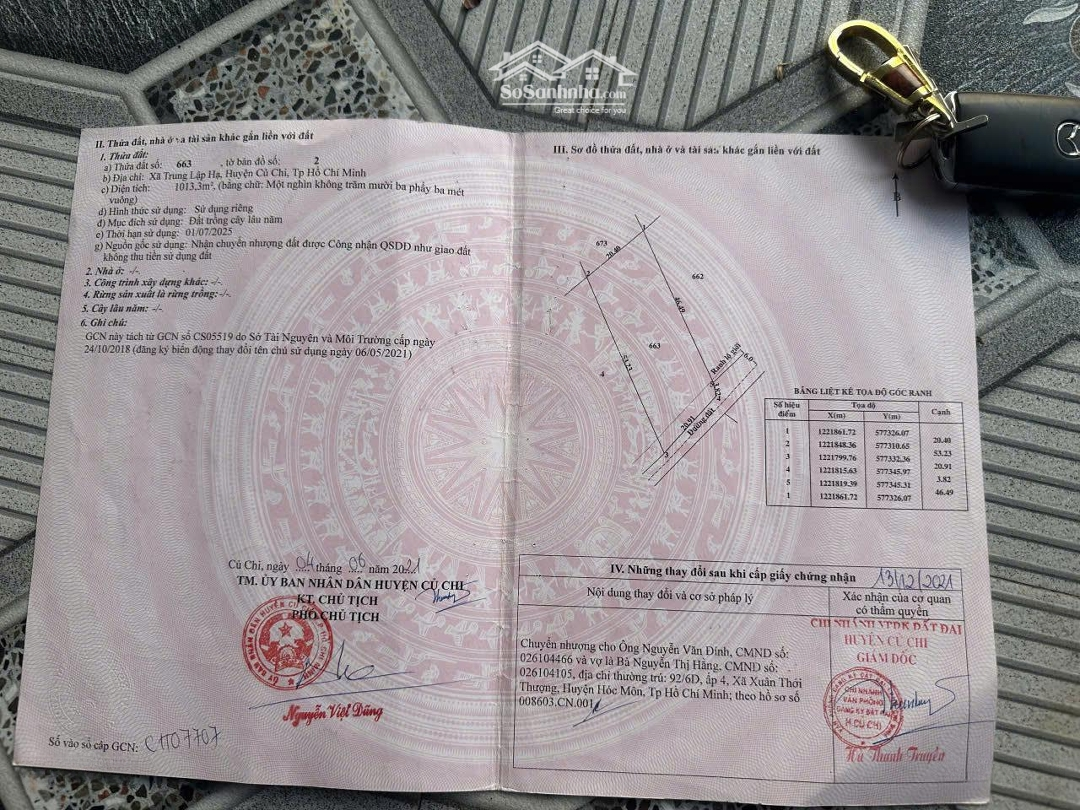 SoSanhnha.com
Great choice for you
II. Thửa đất, nhà ở và tài sản khác gắn liền với đất
1. Thửa đất:
a) Thửa đất số: 663 , tờ bản đồ số: 2
b) Địa chỉ: Xã Trung Lập Hạ, Huyện Củ Chi, Tp Hồ Chí Minh
c) Diện tích: 1013,3m², (bằng chữ: Một nghìn không trăm mười ba phẩy ba mét
vuông)
d) Hình thức sử dụng: Sử dụng riêng
đ) Mục đích sử dụng: Đất trồng cây lâu năm
e) Thời hạn sử dụng: 01/07/2025
g) Nguồn gốc sử dụng: Nhận chuyển nhượng đất được Công nhận QSDĐ như giao đất
không thu tiền sử dụng đất
2. Nhà ở: -/-.
3. Công trình xây dựng khác: -/-.
4. Rừng sản xuất là rừng trồng: -/-.
5. Cây lâu năm: -/-
6. Ghi chú:
GCN này tách từ GCN số CS05519 do Sở Tài Nguyên và Môi Trường cấp ngày
24/10/2018 (đăng ký biến động thay đổi tên chủ sử dụng ngày 06/05/2021)
Củ Chi, ngày 04 tháng 06 năm 2021
TM. ỦY BAN NHÂN DÂN HUYỆN CỦ CHI
KT. CHỦ TỊCH
PHÓ CHỦ TỊCH
Nguyễn Việt Dũng
Số vào sổ cấp GCN: CH07707
III. Sơ đồ thửa đất, nhà ở và tài sản khác gắn liền với đất
B
673
20.40
1
2
662
46.49
663
53.23
4
Ranh lộ giới
6.0
5
3.82
4
20.91
Đường đất
3
BẢNG LIỆT KÊ TỌA ĐỘ GÓC RANH
Số hiệu điểm Tọa độ Cạnh
X(m) Y(m)
1 1221861.72 577326.07
20.40
2 1221848.36 577310.65
53.23
3 1221799.76 577332.36
20.91
4 1221815.63 577345.97
3.82
5 1221819.39 577345.31
46.49
1 1221861.72 577326.07
IV. Những thay đổi sau khi cấp giấy chứng nhận
13/12/2021
Nội dung thay đổi và cơ sở pháp lý
Xác nhận của cơ quan
có thẩm quyền
Chuyển nhượng cho Ông Nguyễn Văn Đính, CMND số:
026104466 và vợ là Bà Nguyễn Thị Hằng, CMND số:
026104105, địa chỉ thường trú: 92/6D, ấp 4, Xã Xuân Thới
Thượng, Huyện Hóc Môn, Tp Hồ Chí Minh; theo hồ sơ số
608603.CN.001
CHI NHÁNH VPĐK ĐẤT ĐAI
HUYỆN CỦ CHI
GIÁM ĐỐC
CHI NHÁNH
VĂN PHÒNG
ĐĂNG KÝ ĐẤT ĐAI
H.CỦ CHI
Hà Thanh Truyền